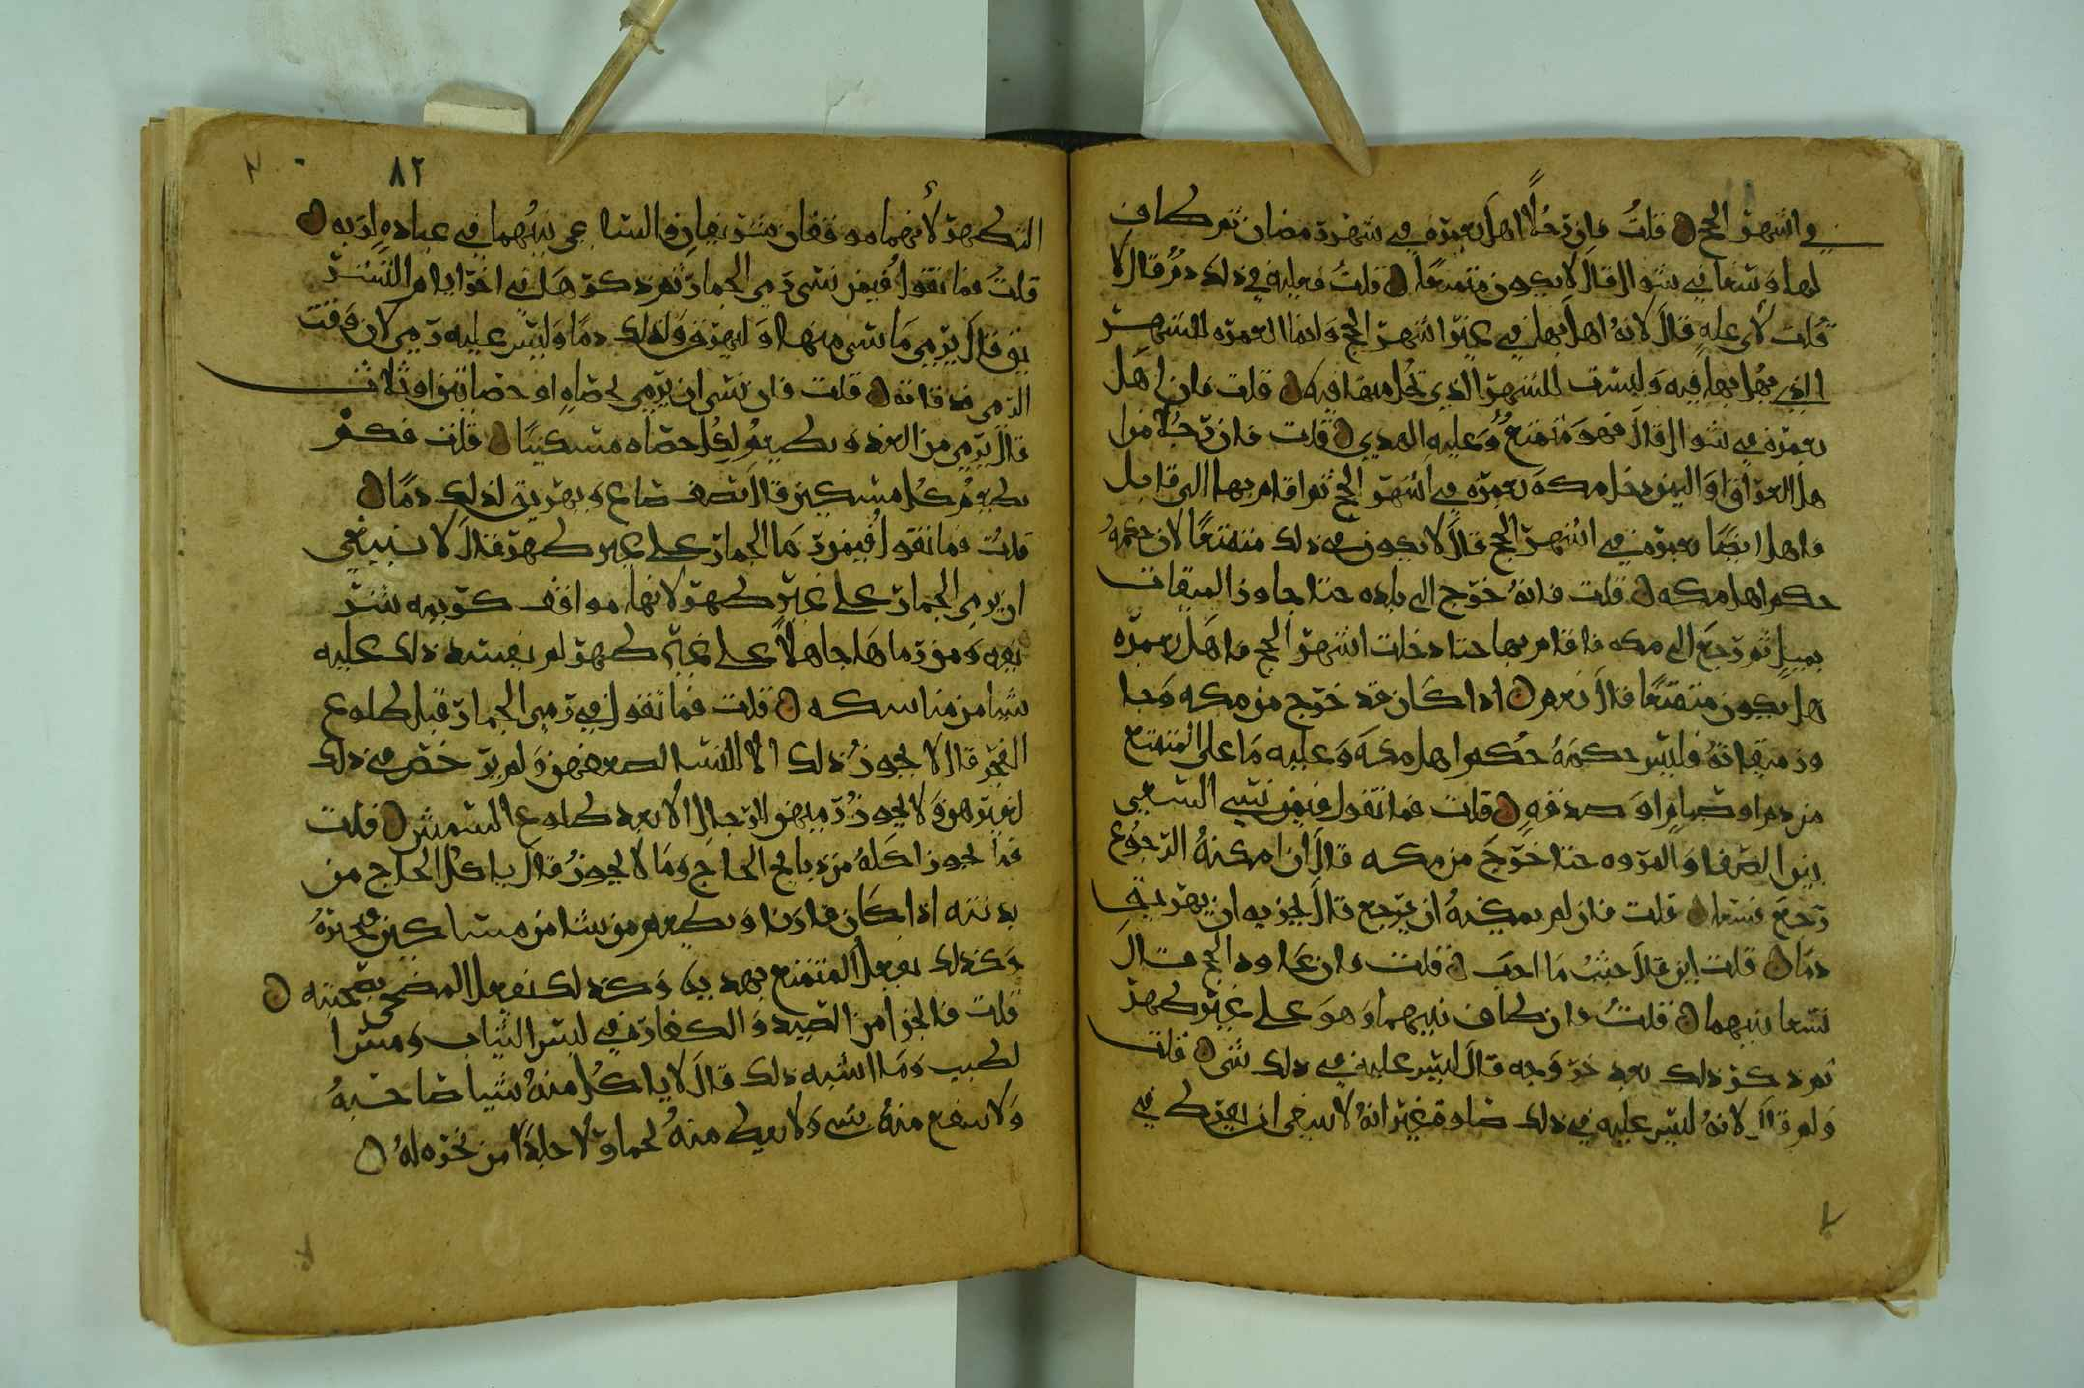 في اشهر الحج قلت فان رجلا اهل بعمره في شهر رمضان ثم طاف
لها وسعا في شوال قال لا يكون متمتعا قلت فعليه في ذلك دم قال لا
قلت لاي عله قال لانه اهل بها في غير اشهر الحج وانما العمره للشهر
الذي يهل بها فيه وليست للشهر الذي تحل منها فيه قلت فان اهل
بعمره في شوال قال فهو متمتع وعليه الهدي قلت فان رجلا من ا
هل العراق او اليمن دخل مكه بعمره في اشهر الحج ثم اقام بها الى قابل
واهل ايضا بعمره في اشهر الحج قال لا يكون في ذلك متمتعا لان حكمه
حكم اهل مكه قلت فانه خرج الى بلده حتا جاوز الميقات
بميل ثم رجع الى مكه فاقام بها حتا دخلت اشهر الحج واهل بعمره
هل يكون متمتعا قال نعم اذا كان قد خرج من مكه وجا
وز ميقاته فليس حكمه حكم اهل مكه وعليه ما على المتمتع
من دم او صيام او صدقه قلت فما تقول فيمن نسي السعي
بين الصفا والمروه حتا خرج من مكه قال ان امكنه الرجوع
رجع فسعا قلت فان لم يمكنه ان يرجع قال يجزيه ان يهريق
دما قلت اين قال حيث ما احب قلت وان عاود الحج قال
سعا بينهما قلت وان طاف بينهما وهو على غير طهر
ثم ذكر ذلك بعد خروجه قال ليس عليه في ذلك شي قلت
ولم قال لانه ليس عليه في ذلك صلوة غير انه لا ينبغي ان يفرط في
٨٢
الطهر لانهما موقفان شريفان والسا عي بينهما في عباده لربه
قلت فما تقول فيمن نسي رمي الجمار ثم ذكر هل في اخر ايام التشر
يق قال يرمي ما نسي منها وليهرق لذلك دما وليس عليه رمي لان وقت
الرمي قد فاته قلت فان نسي ان يرمي بحصاه او حصاتين او ثلاث
قال يرمي من الغد ويطعم لكل حصاه مسكينا قلت فكم
يطعم كل مسكين قال نصف صاع ويهريق لذلك دما
قلت فما تقول فيمن رما الجمار على غير طهر قال لا ينبغي
ان يرمي الجمار على غير طهر لانها مواقف كريمه شر
يفه ومن رماها جاهلا على غير طهر لم يفسد ذلك عليه
شيا من مناسكه قلت فما تقول في رمي الجمار قبل طلوع
الفجر قال لا يجوز ذلك الا للنسا لضعفهن ولم يرخص في ذلك
لغيرهن ولا يجوز رميهن للرجال الا بعد طلوع الشمس قلت
فما يجوز اكله من ذبايح الحاج وما لا يجوز قال ياكل الحاج من
بدنته اذا كان قارنا ويطعم من شا من مساكين
وكذلك يفعل المتمتع بهديه وكذلك يفعل المضحي بضحيته
قلت فالجزا من الصيد والكفاره في لبس الثياب ومس ا
لطيب وما اشبه ذلك قال لا ياكل منه شيا صاحبه
ولا ينتفع منه بشي ولا يعطي منه لحما ولا جلدا من نحره له